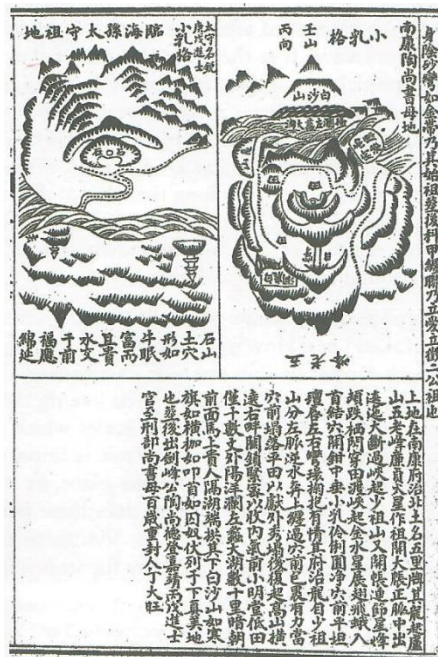 身陰砂彎如金帶乃其始祖葬後科甲綿聯乃立愛立二公祖也
南康陶尚書母地
小乳格
壬山
丙向
白沙山
臨海孫太守祖地
太守名毅
庚戌進士
小乳格
石山
土穴
形如
牛眠
富而
其貴
水文
于前
福應
綿延
上地在南康府治北土名五里牌其龍起廬
山五老峰廉貞火星作祖開大帳正脈中出
逶迤大斷過峽起少祖山又開帳連節星峰
頓跌栖閃穿田渡峽起金水星展翅飛蛾入
首結穴開鉗中垂小乳伶俐圓淨穴前平坦
壇唇左右彎環揖抱有情其府治龍自少祖
山分左脈洋水弄十過穴前包裹有力當
穴前塌落平田以獻外秀塌後復起高山橫
遶右畔關鎖緊密以收內氣前小明堂低田
僅千數丈外陽洋瀾左蠡大湖數十里暗朝
前面馬上貴人隔湖端拱其下白沙山如寒
旗如橫枷如叩首如囚奴伏列于下真美地
也葬後出劍峰公陶尚德登嘉靖丙戌進士
官至刑部尚書母百歲重封人丁大旺